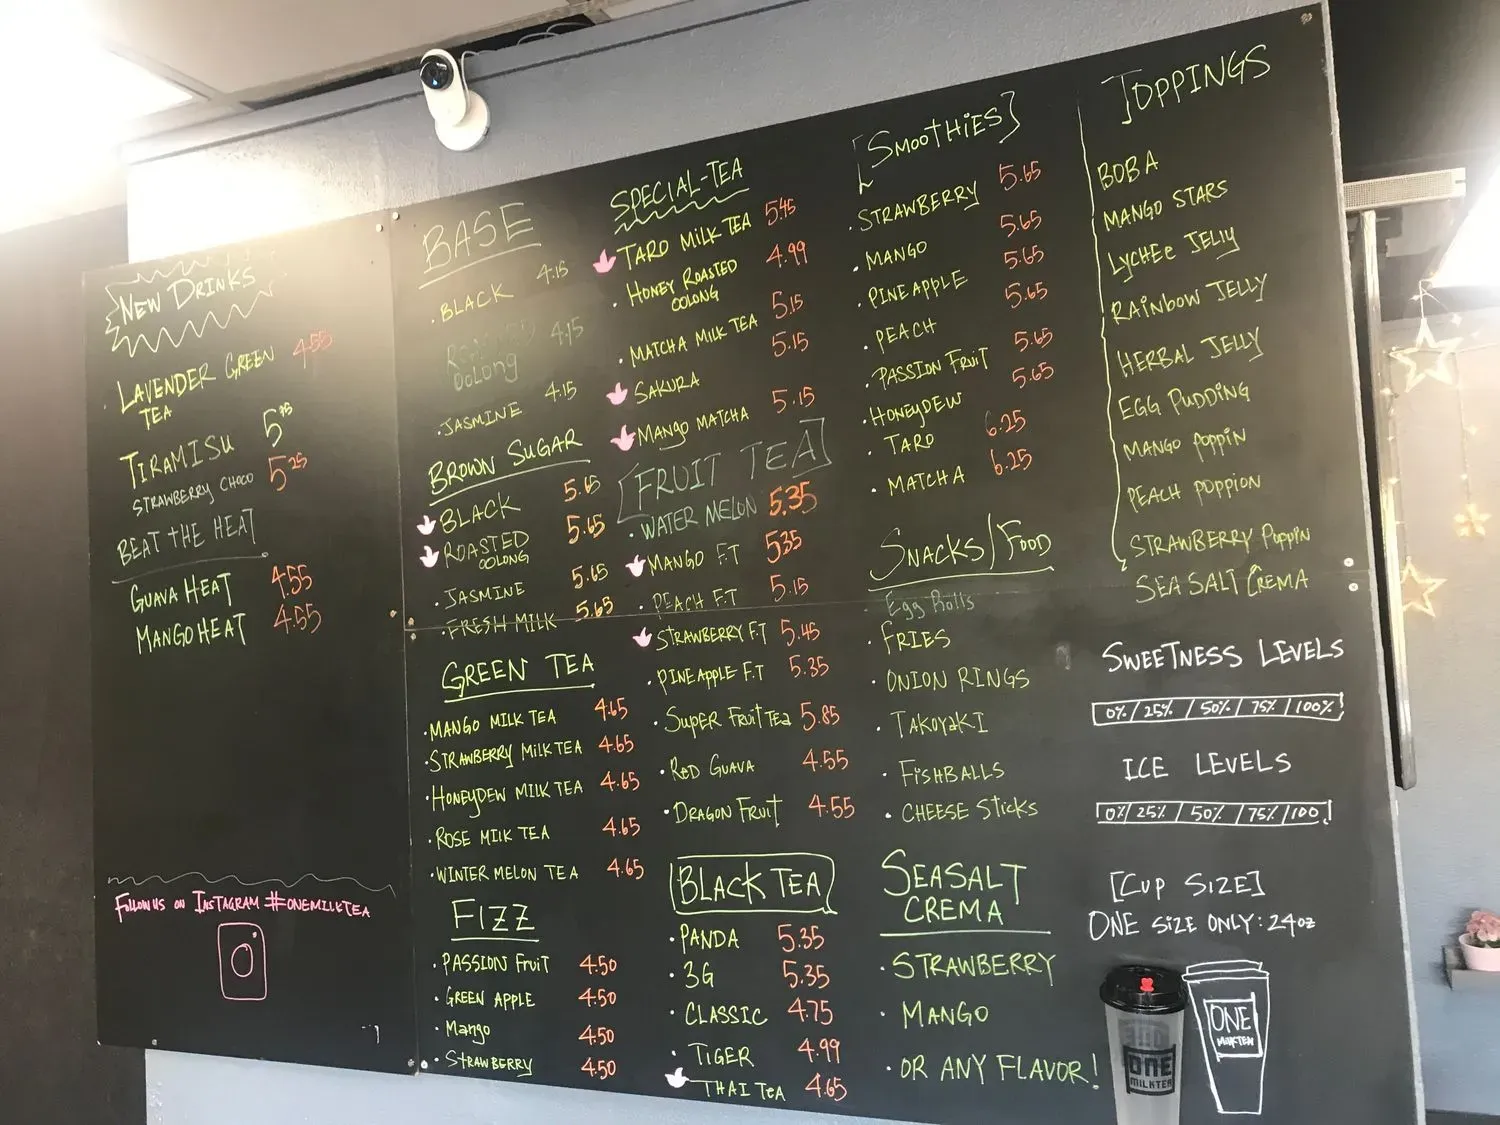 NEW DRINKS
LAVENDER GREEN 4.55
TEA
TIRAMISU 5
STRAWBERRY CHOCO 5.25
BEAT THE HEAT
GUAVA HEAT 4.55
MANGO HEAT 4.55
FOLLOW US ON INSTAGRAM #ONEMILKTEA
BASE
BLACK 4.15
4.15
OOLONG
JASMINE 4.15
BROWN SUGAR
BLACK 5.65
ROASTED 5.65
OOLONG
JASMINE 5.65
FRESH MILK 5.65
GREEN TEA
MANGO MILK TEA 4.65
STRAWBERRY MILK TEA 4.65
HONEYDEW MILK TEA 4.65
ROSE MILK TEA 4.65
WINTER MELON TEA 4.65
FIZZ
PASSION FRUIT 4.50
GREEN APPLE 4.50
MANGO 4.50
STRAWBERRY 4.50
SPECIAL-TEA
TARO MILK TEA 5.45
HONEY ROASTED 4.99
OOLONG
MATCHA MILK TEA 5.15
SAKURA 5.15
MANGO MATCHA 5.15
FRUIT TEA
WATER MELON 5.35
MANGO F.T 5.35
PEACH F.T 5.15
STRAWBERRY F.T 5.45
PINEAPPLE F.T 5.35
SUPER FRUIT TEA 5.85
RED GUAVA 4.55
DRAGON FRUIT 4.55
BLACK TEA
PANDA 5.35
3G 5.35
CLASSIC 4.75
TIGER 4.99
THAI TEA 4.65
[SMOOTHIES]
STRAWBERRY 5.65
MANGO 5.65
PINEAPPLE 5.65
PEACH 5.65
PASSION FRUIT 5.65
HONEYDEW 5.65
TARO 6.25
MATCHA 6.25
SNACKS/FOOD
Egg Rolls
FRIES
ONION RINGS
TAKOYAKI
FISHBALLS
CHEESE STICKS
SEASALT
CREMA
STRAWBERRY
MANGO
OR ANY FLAVOR!
TOPPINGS
BOBA
MANGO STARS
LYCHEE JELLY
RAINBOW JELLY
HERBAL JELLY
EGG PUDDING
MANGO POPPIN
PEACH POPPION
STRAWBERRY POPPIN
SEA SALT CREMA
SWEETNESS LEVELS
0% / 25% / 50% / 75% / 100%
ICE LEVELS
0% / 25% / 50% / 75% / 100
[CUP SIZE]
ONE SIZE ONLY: 24oz
ONE
MILKTEA
ONE
MILKTEA